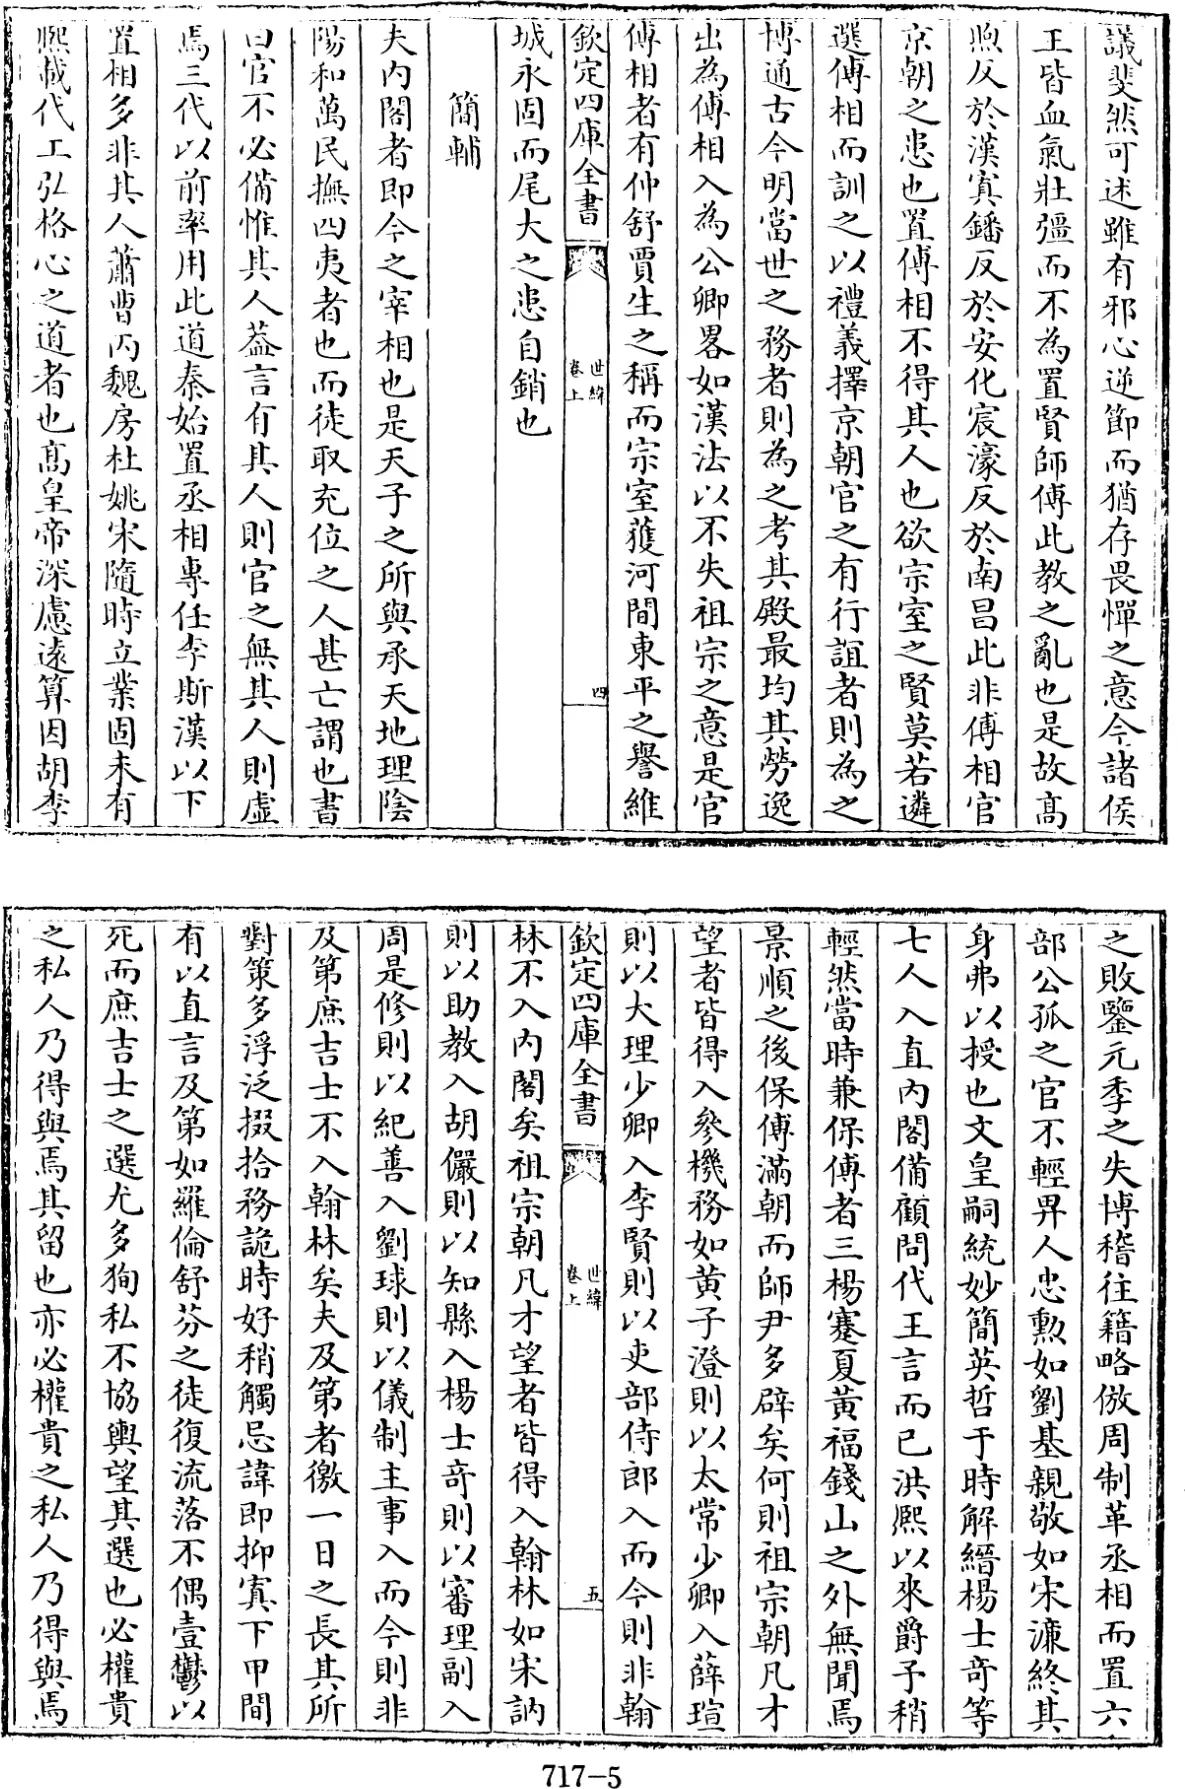 議斐然可述雖有邪心逆節而猶存畏憚之意今諸侯
王皆血氣壯彊而不為置賢師傅此教之亂也是故髙
煦反於漢寘鐇反於安化宸濠反於南昌此非傅相官
京朝之患也置傅相不得其人也欲宗室之賢莫若遴
選傅相而訓之以禮義擇京朝官之有行誼者則為之
博通古今明當世之務者則為之考其殿最均其勞逸
出為傅相入為公卿畧如漢法以不失祖宗之意是官
傅相者有仲舒賈生之稱而宗室獲河間東平之譽維
欽定四庫全書
世緯
卷上
四
城永固而尾大之患自銷也
簡輔
夫内閣者即今之宰相也是天子之所與承天地理陰
陽和萬民撫四夷者也而徒取充位之人甚亡謂也書
曰官不必備惟其人葢言有其人則官之無其人則虛
焉三代以前率用此道秦始置丞相專任李斯漢以下
置相多非其人蕭曹丙魏房杜姚宋隨時立業固未有
熈載代工弘格心之道者也髙皇帝深慮遠算因胡李
之敗鑒元季之失博稽往籍略倣周制革丞相而置六
部公孤之官不輕畀人忠勲如劉基親敬如宋濂終其
身弗以授也文皇嗣統妙簡英哲于時解縉楊士奇等
七人入直内閣備顧問代王言而已洪熈以來爵予稍
輕然當時兼保傅者三楊蹇夏黄福錢山之外無聞焉
景順之後保傅滿朝而師尹多辟矣何則祖宗朝凡才
望者皆得入參機務如黄子澄則以太常少卿入薛瑄
則以大理少卿入李賢則以吏部侍郎入而今則非翰
欽定四庫全書
世緯
卷上
五
林不入内閣矣祖宗朝凡才望者皆得入翰林如宋訥
則以助教入胡儼則以知縣入楊士奇則以審理副入
周是修則以紀善入劉球則以儀制主事入而今則非
及第庶吉士不入翰林矣夫及第者徼一日之長其所
對策多浮泛掇拾務詭時好稍觸忌諱即抑寘下甲間
有以直言及第如羅倫舒芬之徒復流落不偶壹鬱以
死而庶吉士之選尤多狥私不協輿望其選也必權貴
之私人乃得與焉其留也亦必權貴之私人乃得與焉
717-5